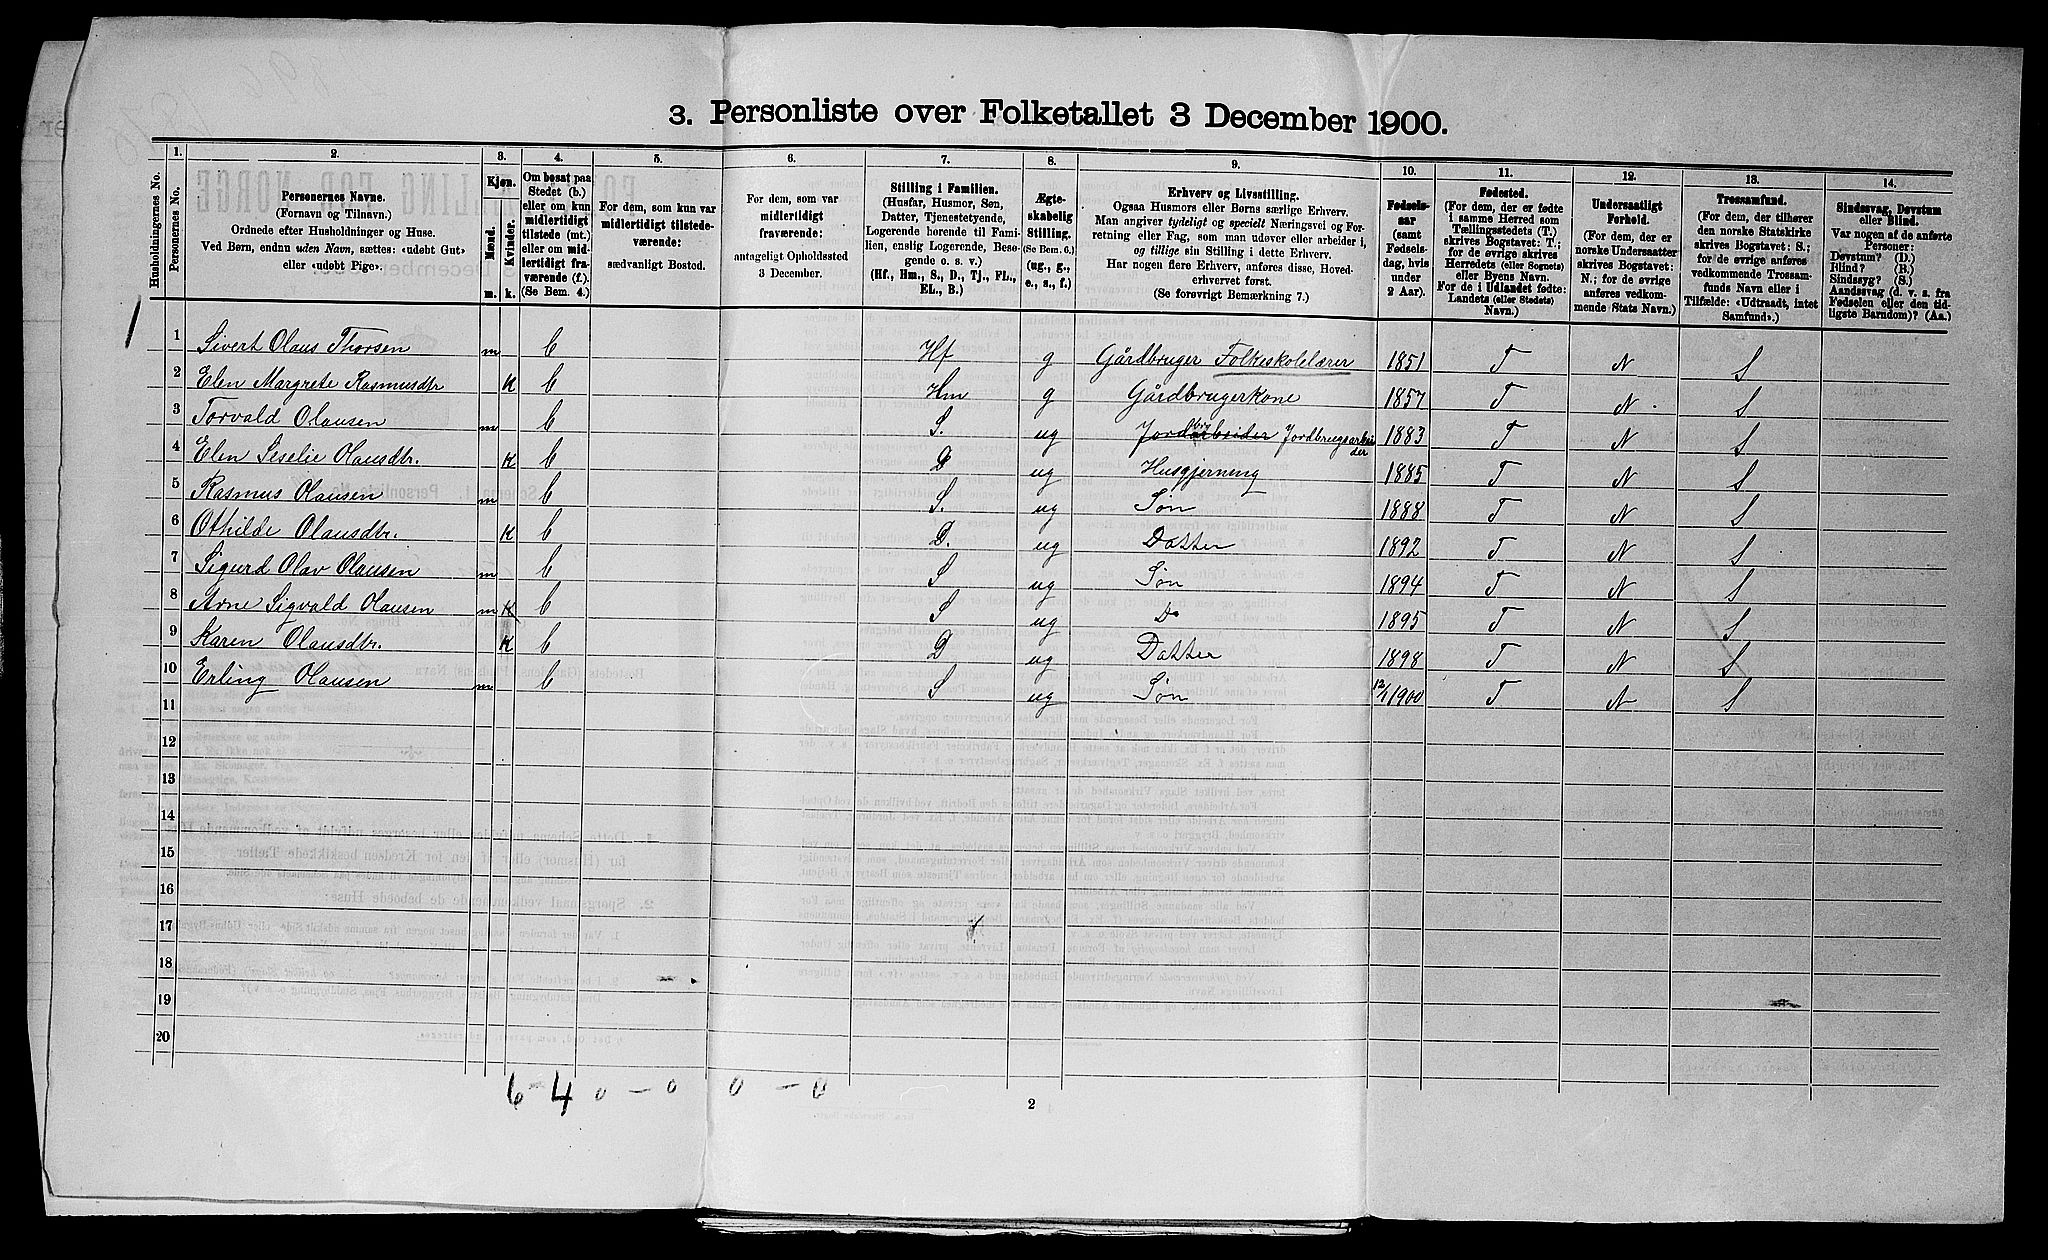 3. Personliste over Folketallet 3 December 1900.
1. 2. 3. 4. 5. 6. 7. 8. 9. 10. 11. 12. 13. 14.
Husholdningernes No.
Personernes No.
Personernes Navne.
(Fornavn og Tilnavn).
Ordnede efter Husholdninger og Huse.
Ved Børn, endnu uden Navn, sættes: «udøbt Gut»
eller «udøbt Pige».
Kjøn.
Mænd.
Kvinder.
m. k.
Om bosat paa
Stedet (b.)
eller om kun
midlertidigt
tilstede (mt.)
eller om mid-
lertidigt fra-
værende (f.).
(Se Bem. 4.)
For dem, som kun var
midlertidigt tilstede-
værende:
sædvanligt Bosted.
For dem, som var
midlertidigt
fraværende:
antageligt Opholdssted
3 December.
Stilling i Familien.
(Husfar, Husmor, Søn,
Datter, Tjenestetyende,
Logerende hørende til Fami-
lien, enslig Logerende, Besø-
gende o. s. v.)
(Hf., Hm., S., D., Tj., FL.,
EL., B.)
Ægte-
skabelig
Stilling.
(Se Bem. 6.)
(ug., g.,
e., s., f.)
Erhverv og Livsstilling.
Ogsaa Husmors eller Børns særlige Erhverv.
Man angiver tydeligt og specielt Næringsvei og For-
retning eller Fag, som man udøver eller arbeider i,
og tillige sin Stilling i dette Erhverv.
Har nogen flere Erhverv, anføres disse, Hoved-
erhvervet først.
(Se forøvrigt Bemærkning 7.)
Fødsels-
aar
(samt
Fødsels-
dag, hvis
under
2 Aar).
Fødested.
(For dem, der er fødte
i samme Herred som
Tællingsstedets (T.)
skrives Bogstavet: T.;
for de øvrige skrives
Herredets (eller Sognets)
eller Byens Navn.
For de i Udlandet fødte:
Landets (eller Stedets)
Navn.)
Undersaatligt
Forhold.
(For dem, der er
norske Undersaatter
skrives Bogstavet:
N.; for de øvrige
anføres vedkom-
mende Stats Navn.)
Trossamfund.
(For dem, der tilhører
den norske Statskirke
skrives Bogstavet: S.;
for de øvrige anføres
vedkommende Trossam-
funds Navn eller i
Tilfælde: «Udtraadt, intet
Samfund».)
Sindssvag, Døvstum
eller Blind.
Var nogen af de anførte
Personer:
Døvstum? (D.)
Blind? (B.)
Sindssyg? (S.)
Aandssvag (d. v. s. fra
Fødselen eller den tid-
ligste Barndom)? (Aa.)
1
1 Sivert Olaus Thorsen m b Hf g Gårdbruger Folkeskolelærer 1851 T N S
2 Elen Margrete Rasmusdtr k b Hm g Gårdbrugerkone 1857 T N S
3 Torvald Olausen m b S. ug Jordarbeider Jordbrugsarbei der 1883 T N S
4 Elen Seselie Olausdtr. k b D ug Husgjerning 1885 T N S
5 Rasmus Olausen m b S. ug Søn 1888 T N S
6 Othilde Olausdtr. k b D. ug Datter 1892 T N S
7 Sigurd Olav Olausen m b S ug Søn 1894 T N S
8 Arne Sigvald Olausen m k b S ug Do 1895 T N S
9 Karen Olausdtr. k b D ug Datter 1898 T N S
10 Erling Olausen m b S ug Søn 12/1 1900 T N S
11
12
13
14
15
16
17
18
19
20
6 - 4 0 - 0 0 - 0
2